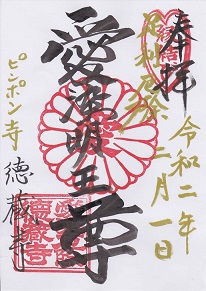 奉拝
令和二年
二月一日
足利
愛染明王尊
ピンポン寺
徳蔵寺